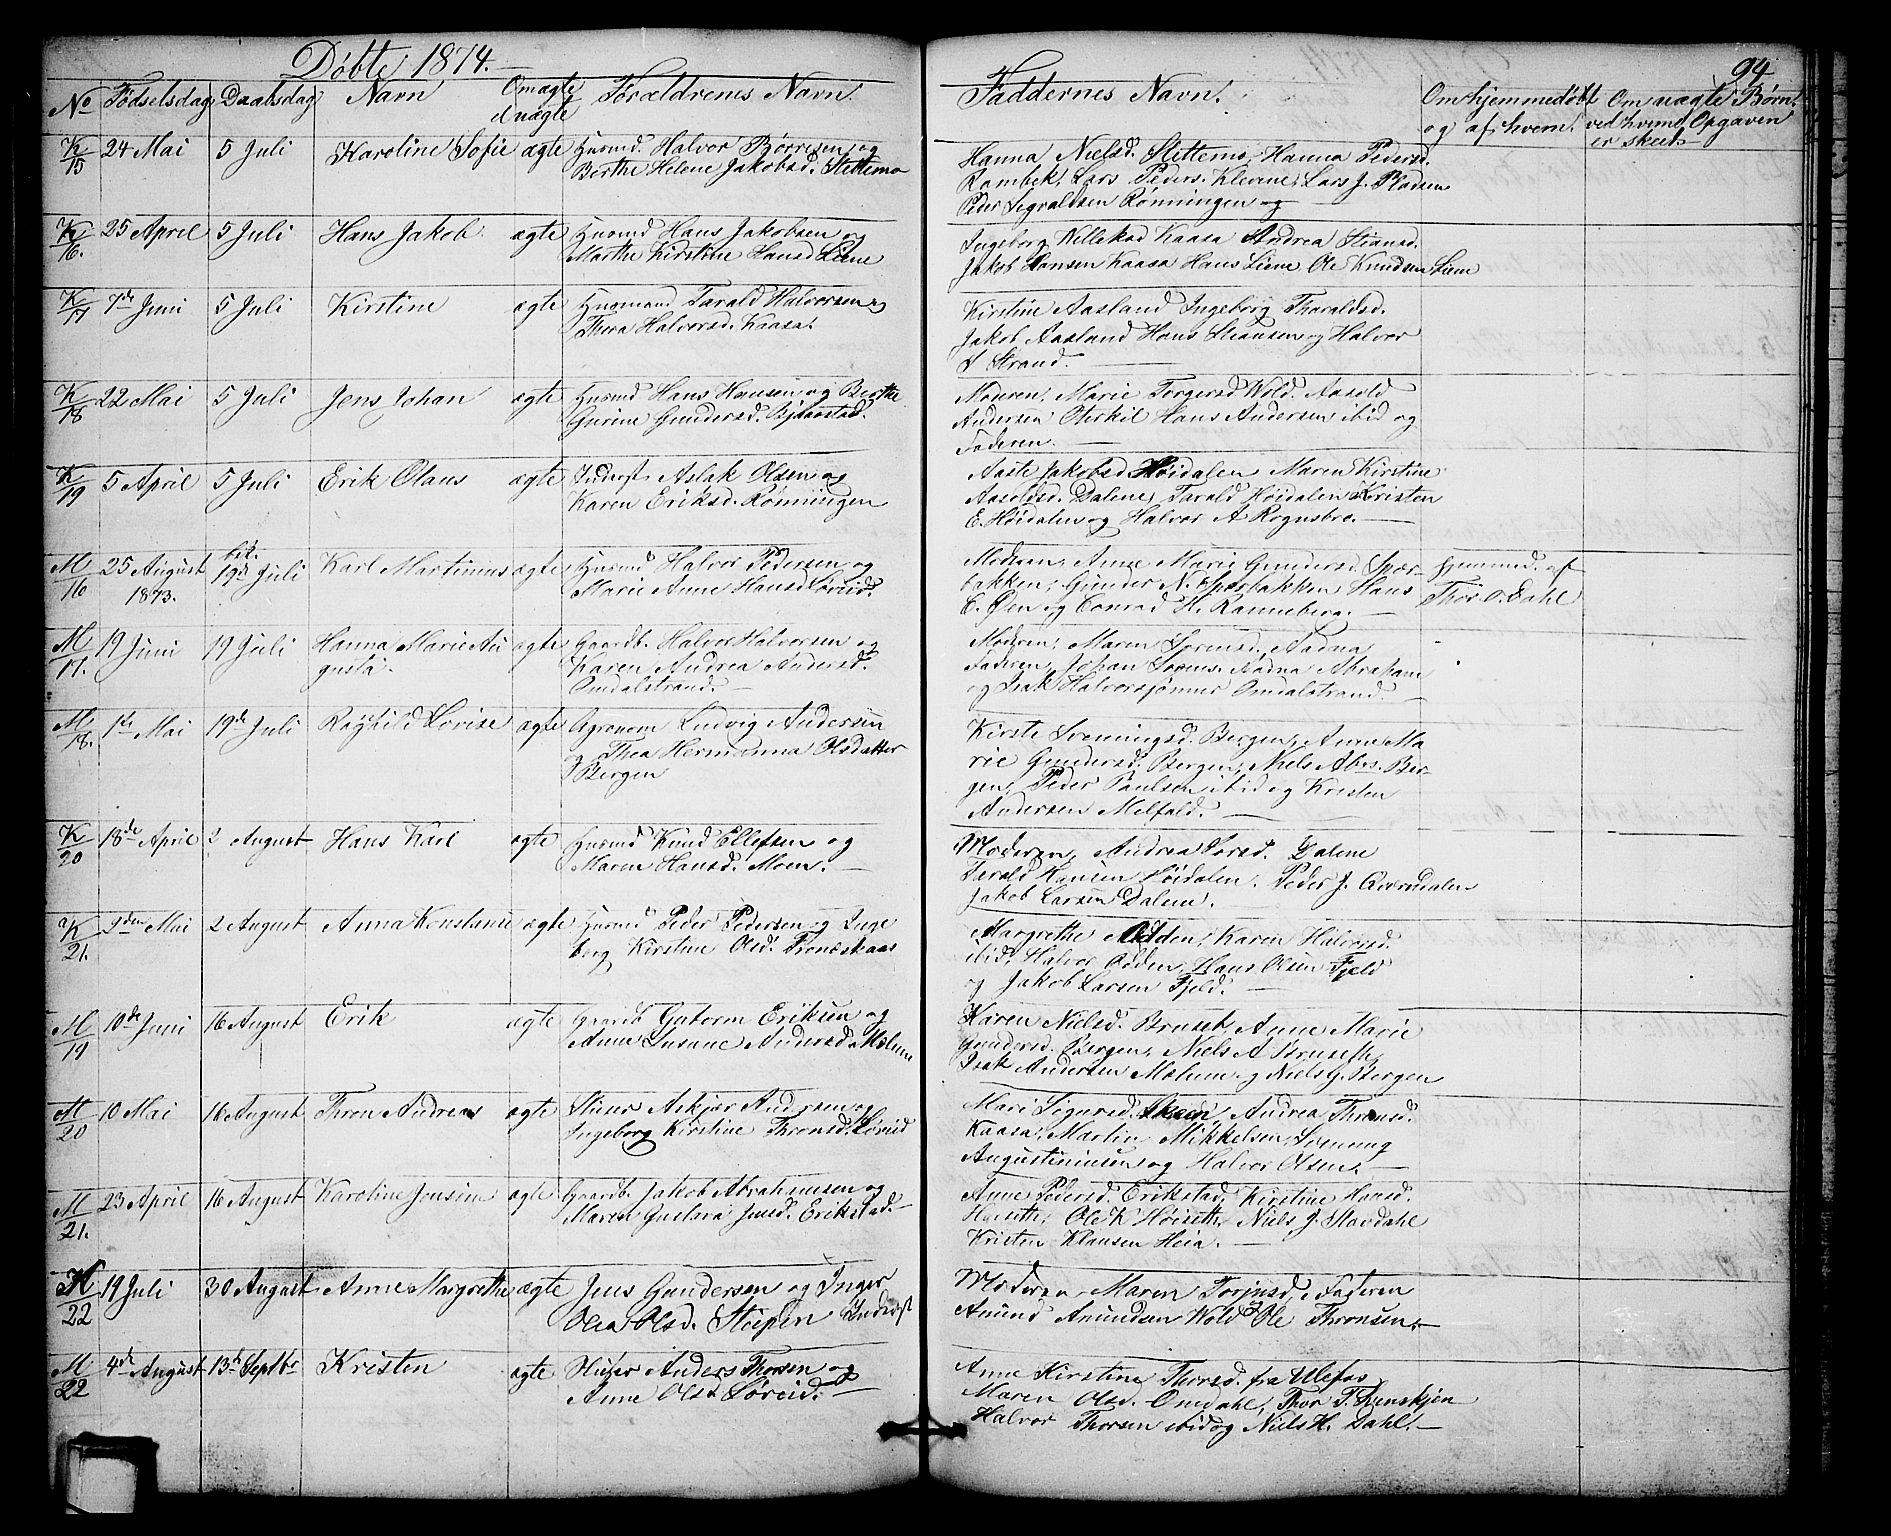 Døbte 1874.
No Fødselsdag Daabsdag Navn Om ægte Forældrenes Navn.
uægte
K/15 24 Mai 5 Juli Karoline Sofie ægte Husmd. Halvor Børresen og
Berthe Helene Jakobsd. Stittemo
K/16. 25 April 5 Juli Hans Jakob ægte Husmd Hans Jakobsen og
Marthe Kirstine Hansd Liene
K/17 7de Juni 5 Juli Kirstine ægte Husmand Tarald Halvorsen og
Thora Halvorsd. Kaasa.
K/18 22 Mai 5 Juli Jens Johan ægte Husmd Hans Hansen og Berthe
Gurine Gundersd.
K/19 5 April 5 Juli Erik Olaus ægte Inderst Aslak Olsen og
Karen Eriksd. Rønningen
M/16 25 August 19de Juli Karl Martinus ægte Husmd Halvor Pedersen og
1873. Marie Anne Hansd Søreid.
M/17. 19 Juni 19 Juli Hanna Marie Au ægte Gaardb. Halvor Halvorsen og
gusta. Karen Andrea Andersd.
Omdalstrand.
M/18. 1de Mai 19de Juli Raghild Lovise ægte Agronom Ludvig Andersen
og Thea Hermanna Olsdatter
Bergen
K/20 18de April 2 August Hans Karl ægte Husmd Knud Ellefsen og
Maren Hansd. Moen.
K/21. 9den Mai 2 August Anna Konstanse ægte Husmd Peder Pedersen og Inge
borg Kirstine Olsd.
M/19 10de Juni 16 August Erik ægte Gaardb Gutorm Eriksen og
Anne Susane Andersd. Mælum
M/20 10 Mai 16 August Thron Andreas ægte Askjær Andersen og
Ingeborg Kirstine Thronsd. Søreid
M/21. 23 April 16 August Karoline Jensine ægte Gaardb. Jakob Abrahamsen og
Maren Gustava Jensd. Erikstad.
K/22 19 Juli 30 August Anne Margrethe ægte Jens Gundersen og Inger
Olea Olsd. Inderst
M/22 4de August 13de Septbr Kristen ægte Anders Thorsen og
Anne Olsd Søreid.
94.
Faddernes Navn. Om hjemmedøbt Om uægte Børn,
og af hvem. ved hvem Opgaven
er skeet
Hanna Nielsd. Stittemo, Hanna Pedersd.
Rambek, Lars Peders. Klevene, Lars J.
Peder Segvaldsen Rønningen og
Ingeborg Kaasa Andrea Stiansd.
Jakob Hansen Kaasa Hans Liene Ole Knudsen Liene
Kirstine Aasland Ingeborg Tharaldsd.
Jakob Aasland Hans Stiansen og Halvor
Strand.
Moderen, Marie Torgersd Wold. Aasold
Andersen Hans Andersen ibid og
Faderen.
Aaste Jakobsd Høidalen Maren Kirstine
Aasoldsd. Dalene, Tarald Høidalen Kristen
E. Høidalen og Halvor A Rognsbro.
Moderen, Anne Marie Gundersd hjemmed. af
bakken, Gunder N. Hans Thor O. Dahl
C. Øen og Conrad H. Ranneberg.
Moderen, Maren Sørensd. Aadna
Faderen, Johan Sørens. Aadna Abraham
og Isak Halvorsønner Omdalstrand.
Kirste Svenningsd. Bergen, Anne Ma
rie Gundersd. Bergen, Niels Abrs. Ber-
gen, Peder Paulsen ibid og Kristen
Andersen Melfald.
Moderen, Andrea Larsd. Dalene
Tarald Hansen Høidalen, Peder J. Qværndalen
Jakob Larsen Dalene.
Margrethe Odden, Karen Halvorsd.
ibid, Halvor Odden, Hans Olsen Fjeld
og Jakob Larsen Fjeld.
Karen Nielsd. Bruset, Anne Marie
Gundersd. Bergen, Niels A Bruseth,
Isak Andersen Mælum og Niels G. Bergen
Mari Sigursd. Skeen, Andrea Thronsd.
Kaasa, Martin Mikkelsen, Svennung
Augustiniusen og Halvor Olsen.
Anne Pedersd. Erikstad, Kirstine Hansd.
Høiseth, Ole K Høiseth, Niels J. Stavdahl
Kristen Klausen Heia.
Moderen Maren Torjusd, Faderen
Amund Amundsen Wold Ole Thronsen.
Anne Kirstine Thorsd. fra Ulefos
Maren Olsd. Omdahl, Thor T.
Halvor Thorsen ibid og Niels H. Dahl.